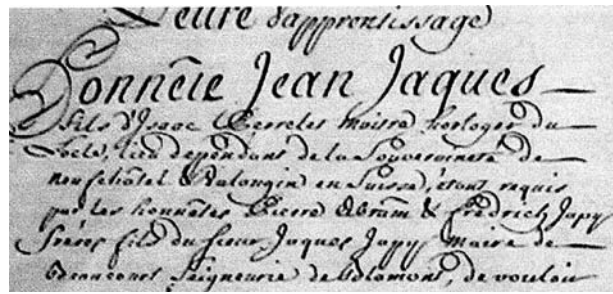 Lettre d'apprentissage
Honnête Jean Jaques
fils d'Isaac Perrelet maitre horloger du
Locle, lieu dépendant de la Souveraineté de
neufchâtel & Valangin en Suisse, étant requis
par les honnêtes Pierre Abram & Fredrich Japy
frères fils du sieur Jaques Japy Maire de
Beaucourt Seigneurie de Blamont, de vouloir